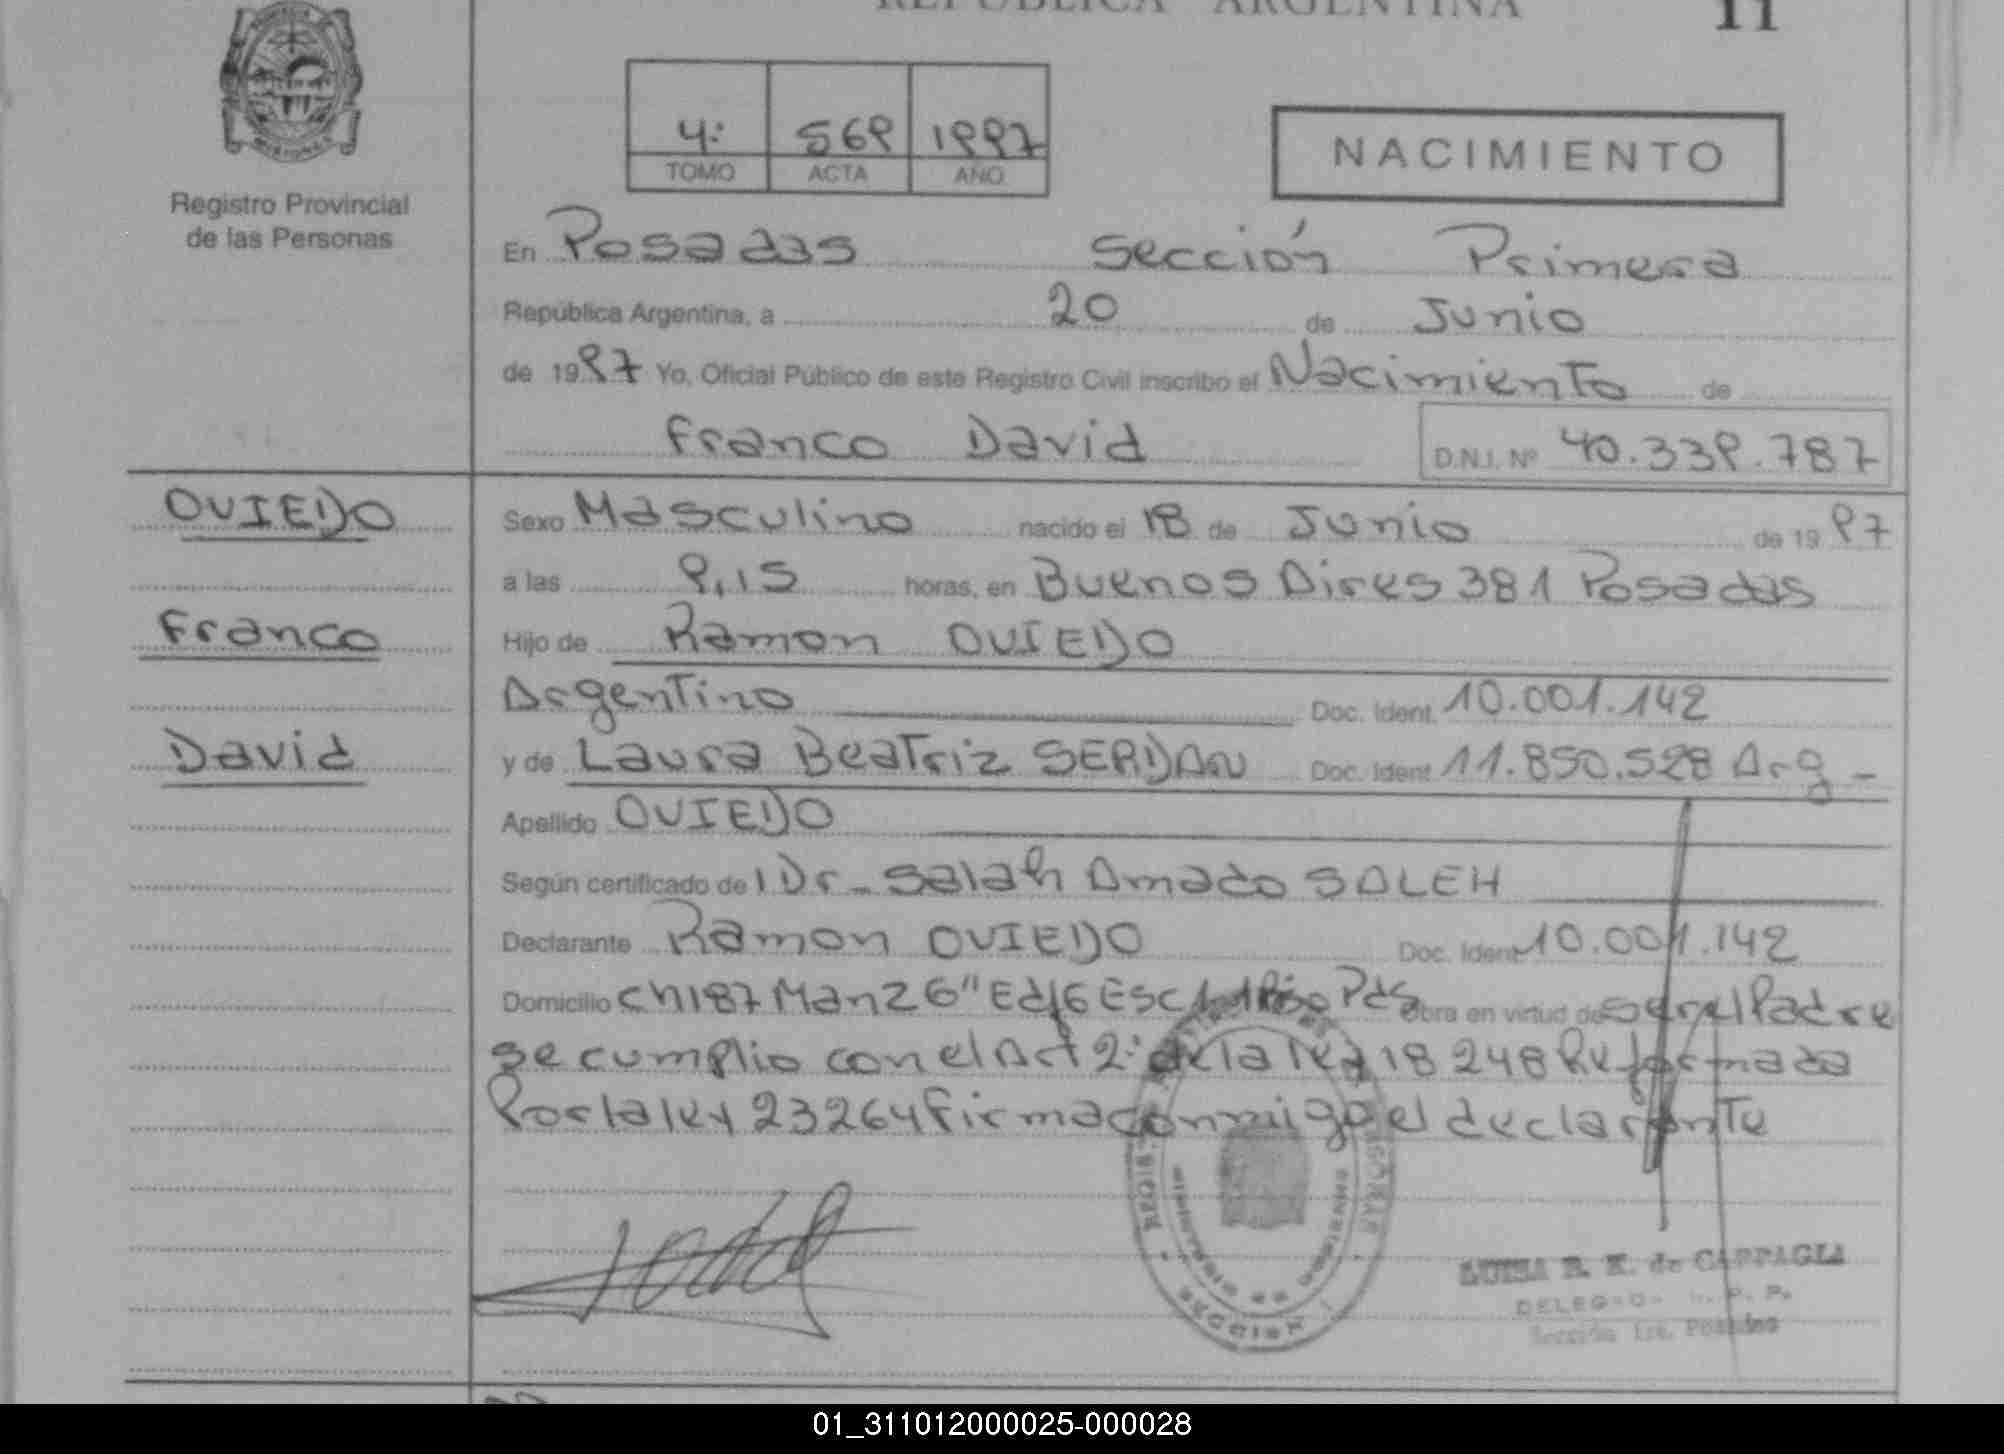 REPUBLICA ARGENTINA
11
MISIONES
Registro Provincial
de las Personas
4º
569
1997
TOMO
ACTA
AÑO
NACIMIENTO
En Posadas Sección Primera
República Argentina, a 20 de Junio
de 1997 Yo, Oficial Público de este Registro Civil inscribo el Nacimiento de
Franco David
D.N.I. Nº 40.339.787
OVIEDO
Franco
David
Sexo Masculino nacido el 18 de Junio de 1997
a las 9,15 horas, en Buenos Aires 381 Posadas
Hijo de Ramon OVIEDO
Argentino Doc. Ident. 10.001.142
y de Laura Beatriz SERDAN Doc. Ident 11.850.528 Arg
Apellido OVIEDO
Según certificado del Dr. Salah Amado SALEH
Declarante Ramon OVIEDO Doc. Ident 10.001.142
Domicilio Ch187 Manz 6" Ed/6 Esc Piso Pds Obra en virtud de ser el Padre
se cumplio con el Art 2º de la ley 18248 Reformada
Por la ley 23264 firma conmigo el declarante
SECCION
LUISA R. K. de CAPPAGLI
Sección 1ra. Posadas
01_311012000025-000028